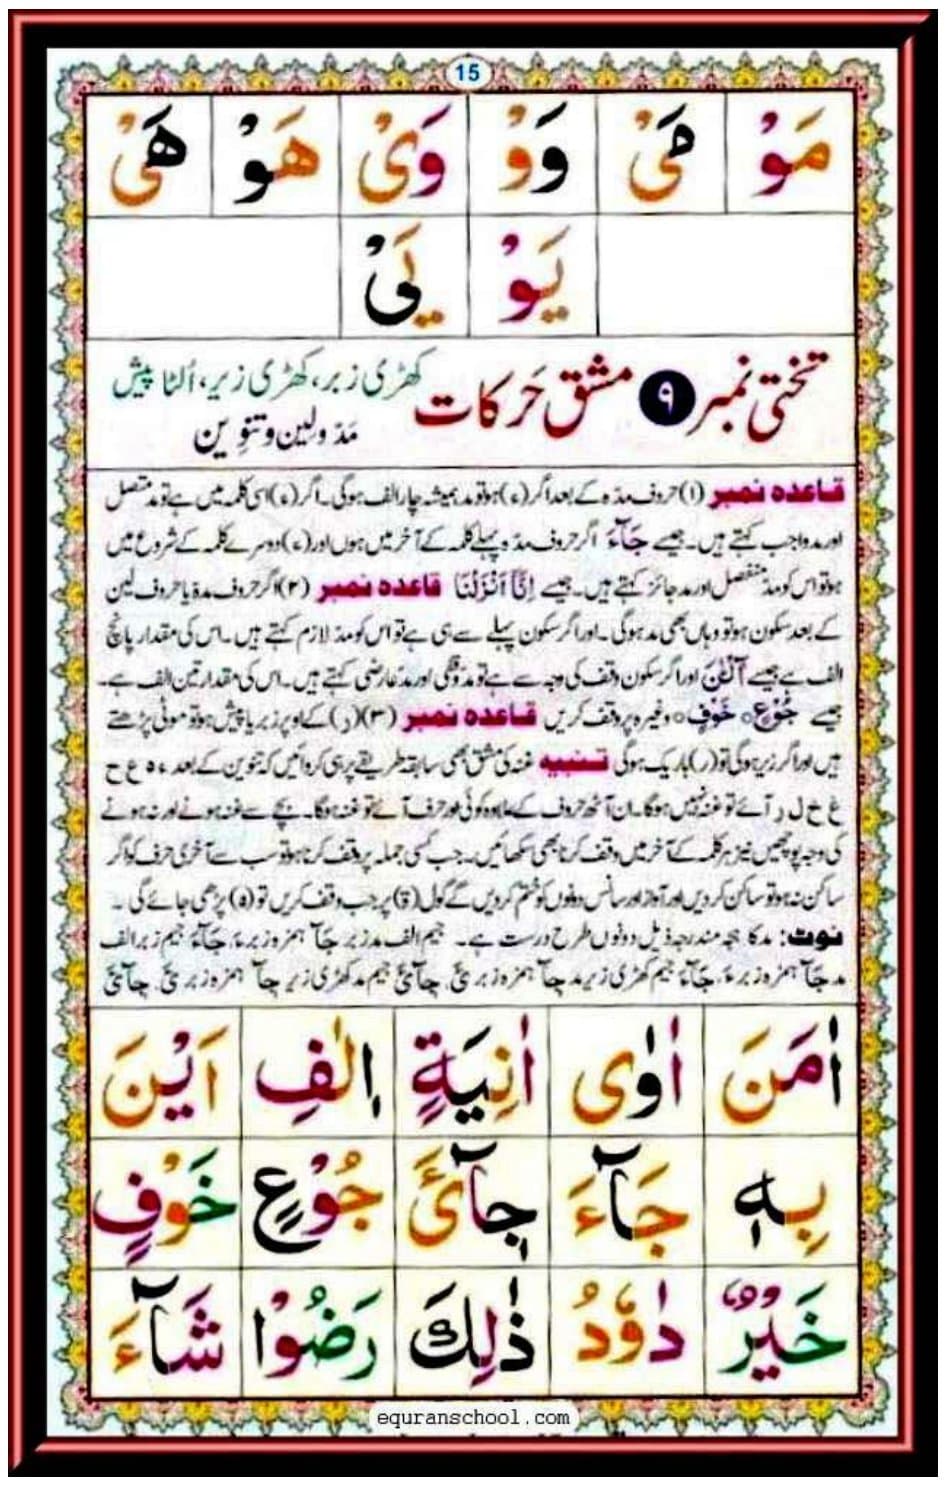 15
مَوْ مَیْ وَوْ وَیْ هَوْ هَیْ
یَوْ یَیْ
تختی نمبر ۹ مشق حَرکات کھڑی زبر، کھڑی زیر، اُلٹا پیش
مَدّ و لین و تنوین
قاعدہ نمبر (۱) حروف مدّہ کے بعد اگر (ء) ہو تو مد ہمیشہ چار الف ہوگی۔ اگر (ء) اسی کلمہ میں ہے تو مد متصل
اور مد واجب کہتے ہیں۔ جیسے جَآءَ اگر حروف مدّہ پہلے کلمہ کے آخر میں ہوں اور (ء) دوسرے کلمہ کے شروع میں
ہو تو اس کو مدّ منفصل اور مد جائز کہتے ہیں۔ جیسے اِنَّآ اَنْزَلْنَا قاعدہ نمبر (۲) اگر حروف مدّہ یا حروف لین
کے بعد سکون ہو تو وہاں بھی مد ہوگی۔ اور اگر سکون پہلے سے ہی ہے تو اس کو مدّ لازم کہتے ہیں۔ اس کی مقدار پانچ
الف ہے جیسے آٰلْـٰٔنَ اور اگر سکون وقف کی وجہ سے ہے تو مدّ وقفی اور مدّ عارضی کہتے ہیں۔ اس کی مقدار تین الف ہے۔
جیسے جُوْعٍ ○ خَوْفٍ ○ وغیرہ پر وقف کریں قاعدہ نمبر (۳) (ر) کے اوپر زبر یا پیش ہو تو موٹی پڑھتے
ہیں اور اگر زیر ہوگی تو (ر) باریک ہوگی تنبیہ غنہ کی مشق بھی سابقہ طریقے پر ہی کروائیں کہ تنوین کے بعد ء ہ ع ح
غ خ ل ر آئے تو غنہ نہیں ہوگا۔ ان آٹھ حروف کے علاوہ کوئی اور حرف آئے تو غنہ ہوگا۔ بچے سے غنہ ہونے اور نہ ہونے
کی وجہ پوچھیں نیز ہر کلمہ کے آخر میں وقف کرنا بھی سکھائیں۔ جب کسی جملہ پر وقف کرنا ہو تو سب سے آخری حرف کو اگر
ساکن نہ ہو تو ساکن کر دیں اور آواز اور سانس دونوں کو ختم کر دیں گے گول (ۃ) پر جب وقف کریں تو (ہ) پڑھی جائے گی۔
نوٹ: مد کا ہجہ مندرجہ ذیل دونوں طرح درست ہے۔ جیم الف مد زبر جَآ ہمزہ زبر ءَ، جَآءَ جیم زبر الف
مد جَآ ہمزہ زبر ءَ، جَآءَ جیم کھڑی زیر مد جآ ہمزہ زبر یَٔ، جِآیَٔ جیم مد کھڑی زیر جآ ہمزہ زبر یَٔ، جِآیَٔ
اٰمَنَ اٰوٰی اٰنِیَةٍ اٖلٰفِ اَیْنَ
بِهٖ جَآءَ جِآیَٔ جُوْعٍ خَوْفٍ
خَیْرٌ دَاوٗدُ ذٰلِكَ رَضُوْا شَآءَ
equranschool.com